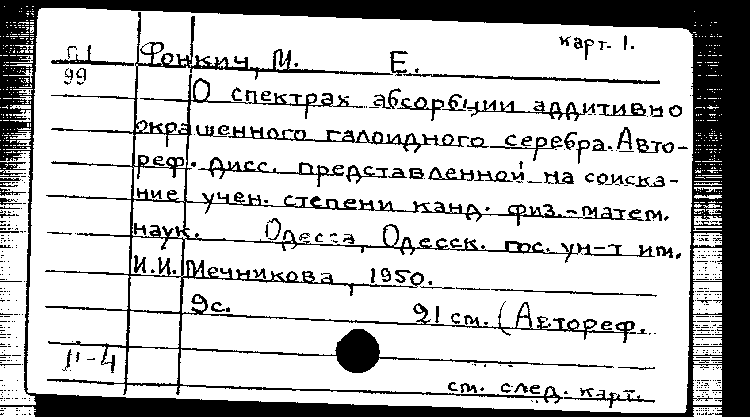 карт. 1.
Фонкич, М. Е.
99
О спектрах абсорбции аддитивно
окрашенного галоидного серебра. Авто-
реф. дисс. представленной на соиска-
ние учен. степени канд. физ.-матем.
наук. Одесса, Одесск. гос. ун-т им.
И.И. Мечникова, 1950.
9с. 21 см. (Автореф.
см. след. карт.